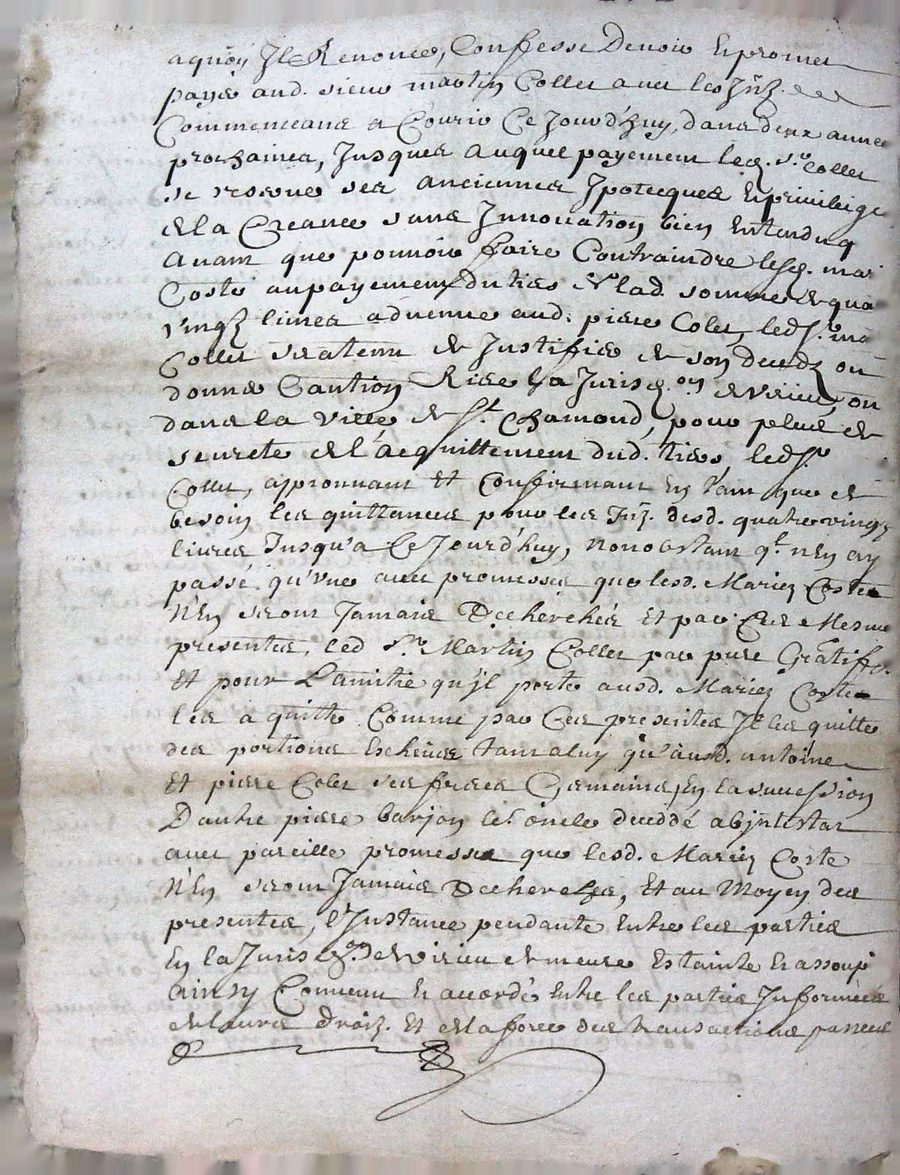 aquoy Il Renonce, Confesse Devoir Et promet
payer aud. sieur martin Collet avec les Intz.
Commenceans a Courir Ce Jourd'huy, dans deux année
prochaines, Jusques auquel payement led. Sr. Collet
se reserve ses anciennes Ipotecques Et privilege
de la Creance sans Innovation, bien Entendu q
avant que pouvoir faire Contraindre lesd. mari
Coste au payement du tiers de lad. somme de qua
vingt livres advenue aud. piere Colet, led. Sr. ma
Collet sera tenu de Justifier de son deceds ou
donner Caution Riere la Jurisd.on de virieu, ou
dans la ville de St. Chamond, pour plus de
seureté de l'acquittement dud. tiers, led. Sr.
Collet, approuvant et Confirmant En tant que de
besoin les quittances pour les Int. desd. quatre vingt
livres Jusqu'a Ce Jourd'huy, nonobstant q'l n'En ay
passé qu'une avec promesses que lesd. Mariez Coste
n'En seront Jamais Recherchés Et par Ces Mesme
presentes, led. Sr. Martin Collet par pure Gratiffo.
Et pour L'amitié qu'il porte ausd. Mariez Coste
les a quitté Comme par Ces presentes Il les quitte
des portions Escheues tant a luy qu'ausd. antoine
Et piere Colet ses freres Germains, En la succession
D'autre piere barjon leur oncle decedé abjntestat
avec pareille promesse que lesd. Mariez Coste
n'En seront Jamais Recherches, Et au Moyen des
presentes, l'Instance pendante Entre les parties
En la Jurisd.on de virieu demeure Estainte Et assoupi
ainsy Convenu Et accordé Entre les parties Informées
de leurs Droitz. Et de la force des transactions passées